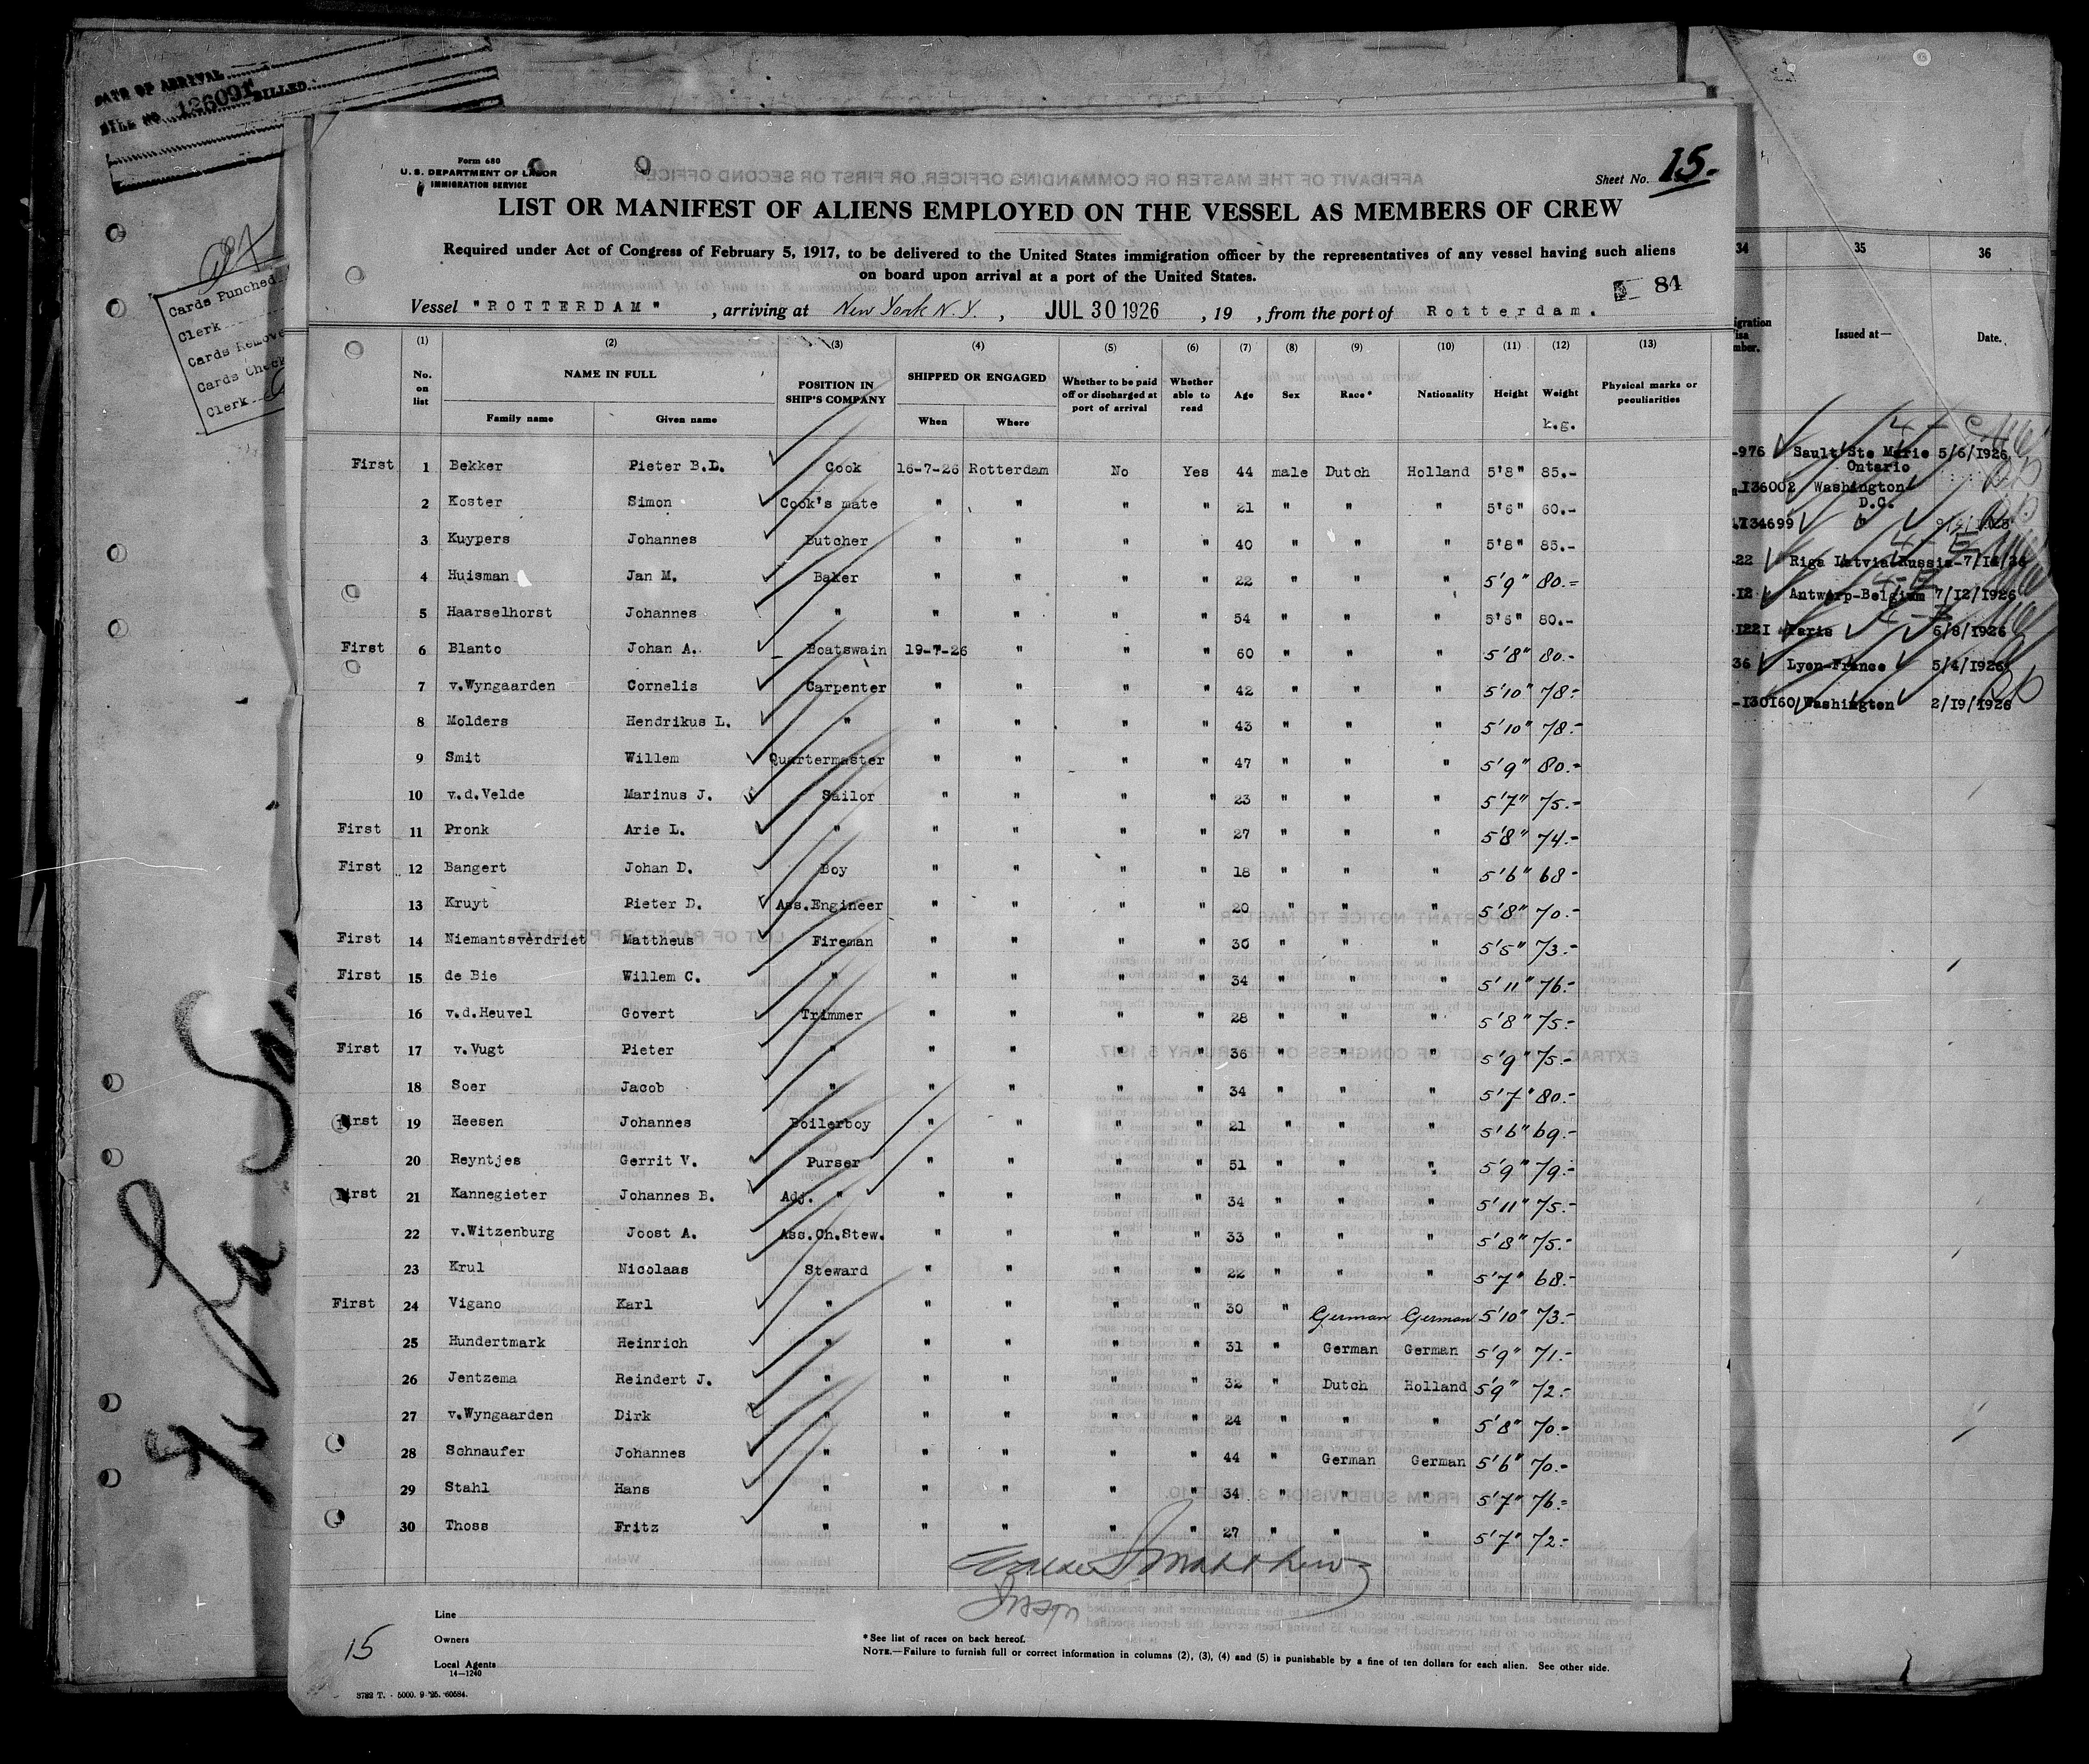 DATE OF ARRIVAL
BILL NO. 126091 BILLED
Cards Punched
Clerk
Cards Remove
Cards Check
Clerk
Form 680
U. S. DEPARTMENT OF LABOR
IMMIGRATION SERVICE
Sheet No. 15.
LIST OR MANIFEST OF ALIENS EMPLOYED ON THE VESSEL AS MEMBERS OF CREW
Required under Act of Congress of February 5, 1917, to be delivered to the United States immigration officer by the representatives of any vessel having such aliens
on board upon arrival at a port of the United States.
84
Vessel "ROTTERDAM", arriving at New York N.Y., JUL 30 1926, 19 , from the port of Rotterdam.
(1) (2) (3) (4) (5) (6) (7) (8) (9) (10) (11) (12) (13)
No. on list NAME IN FULL POSITION IN SHIP'S COMPANY SHIPPED OR ENGAGED Whether to be paid off or discharged at port of arrival Whether able to read Age Sex Race* Nationality Height Weight Physical marks or peculiarities
Family name Given name When Where k.g.
First 1 Bekker Pieter B.L. Cook 16-7-26 Rotterdam No Yes 44 male Dutch Holland 5'8" 85.-
2 Koster Simon Cook's mate " " " " 21 " " " 5'6" 60.-
3 Kuypers Johannes Butcher " " " " 40 " " " 5'8" 85.-
4 Huisman Jan M. Baker " " " " 22 " " " 5'9" 80.-
5 Haarselhorst Johannes " " " " " 54 " " " 5'6" 80.-
First 6 Blanto Johan A. Boatswain 19-7-26 " " " 60 " " " 5'8" 80.-
7 v.Wyngaarden Cornelis Carpenter " " " " 42 " " " 5'10" 78.-
8 Molders Hendrikus L. " " " " " 43 " " " 5'10" 78.-
9 Smit Willem Quartermaster " " " " 47 " " " 5'9" 80.-
10 v.d.Velde Marinus J. Sailor " " " " 23 " " " 5'7" 75.-
First 11 Pronk Arie L. " " " " " 27 " " " 5'8" 74.-
First 12 Bangert Johan D. Boy " " " " 18 " " " 5'6" 68-
13 Kruyt Pieter D. Ass.Engineer " " " " 20 " " " 5'8" 70.-
First 14 Niemantsverdriet Mattheus Fireman " " " " 30 " " " 5'5" 73.-
First 15 de Bie Willem C. " " " " " 34 " " " 5'11" 76.-
16 v.d.Heuvel Govert Trimmer " " " " 28 " " " 5'8" 75.-
First 17 v.Vugt Pieter " " " " " 36 " " " 5'9" 75.-
18 Soer Jacob " " " " " 34 " " " 5'7" 80.-
First 19 Heesen Johannes Boilerboy " " " " 21 " " " 5'6" 69.-
20 Reyntjes Gerrit V. Purser " " " " 51 " " " 5'9" 79.-
First 21 Kannegieter Johannes B. Adj. " " " " " 34 " " " 5'11" 75.-
22 v.Witzenburg Joost A. Ass.Ch.Stew. " " " " 33 " " " 5'8" 75.-
23 Krul Nicolaas Steward " " " " 22 " " " 5'7" 68.-
First 24 Vigano Karl " " " " " 30 " German German 5'10" 73.-
25 Hundertmark Heinrich " " " " " 31 " German German 5'9" 71.-
26 Jentzema Reindert J. " " " " " 32 " Dutch Holland 5'9" 72.-
27 v.Wyngaarden Dirk " " " " " 24 " " " 5'8" 70.-
28 Schnaufer Johannes " " " " " 44 " German German 5'6" 70.-
29 Stahl Hans " " " " " 34 " " " 5'7" 76.-
30 Thoss Fritz " " " " " 27 " " " 5'7" 72.-
Line
Owners
Local Agents
14—1240
15
*See list of races on back hereof.
NOTE.—Failure to furnish full or correct information in columns (2), (3), (4) and (5) is punishable by a fine of ten dollars for each alien. See other side.
3782 T. - 5000. 9 '25. 60584.
34 35 36
Issued at— Date.
-976 Sault Ste Marie 5/6/1926
Ontario
136002 Washington
D.C.
134699 "
-22 Riga Latvia Russia-7/14/26
-12 Antwerp-Belgium 7/12/1926
-1221 Paris 6/8/1926
36 Lyon-France 5/4/1926
-130160 Washington 2/19/1926